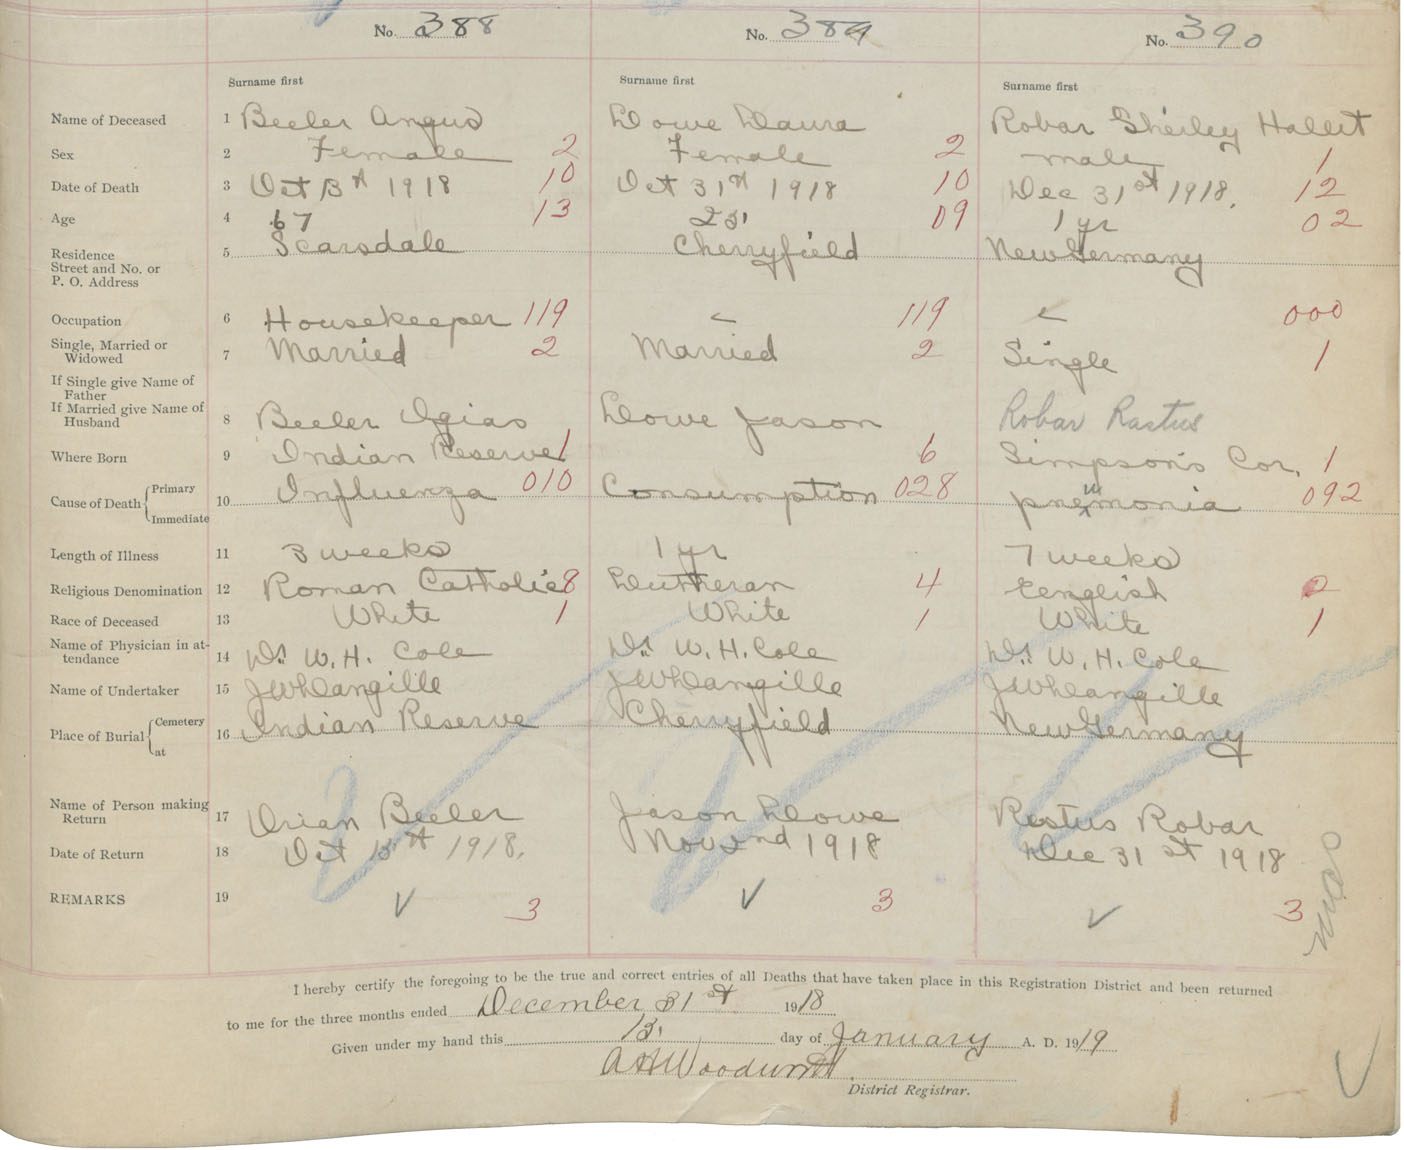 No. 388 No. 389 No. 390
Surname first Surname first Surname first
Name of Deceased 1 Beeler Angus Lowe Laura Robar Sherley Halleit
Sex 2 Female 2 Female 2 male 1
Date of Death 3 Oct 13th 1918 10 Oct 31st 1918 10 Dec 31st 1918. 12
Age 4 67 13 25 09 1 yr 02
Residence
Street and No. or
P. O. Address
5 Scarsdale Cherryfield New Germany
Occupation 6 Housekeeper 119 119 000
Single, Married or
Widowed
7 Married 2 Married 2 Single 1
If Single give Name of
Father
If Married give Name of
Husband
8 Beeler Lowe Jason Robar Rastus
Where Born 9 Indian Reserve 1 6 Simpson's Cor. 1
Cause of Death Primary
Immediate
10 Influenza 010 Consumption 028 pneumonia 092
Length of Illness 11 3 weeks 1 yr 7 weeks
Religious Denomination 12 Roman Catholic 8 Lutheran 4 English 2
Race of Deceased 13 White 1 White 1 White 1
Name of Physician in at-
tendance
14 Dr. W. H. Cole Dr. W. H. Cole Dr. W. H. Cole
Name of Undertaker 15 J W Langille J W Langille J W Langille
Place of Burial Cemetery
at
16 Indian Reserve Cherryfield New Germany
Name of Person making
Return
17 Beeler Jason Lowe Rastus Robar
Date of Return 18 Oct 15th 1918. Nov 2nd 1918 Dec 31st 1918
REMARKS 19 3 3 3
I hereby certify the foregoing to be the true and correct entries of all Deaths that have taken place in this Registration District and been returned
to me for the three months ended December 31st 1918
Given under my hand this day of January A. D. 1919
District Registrar.